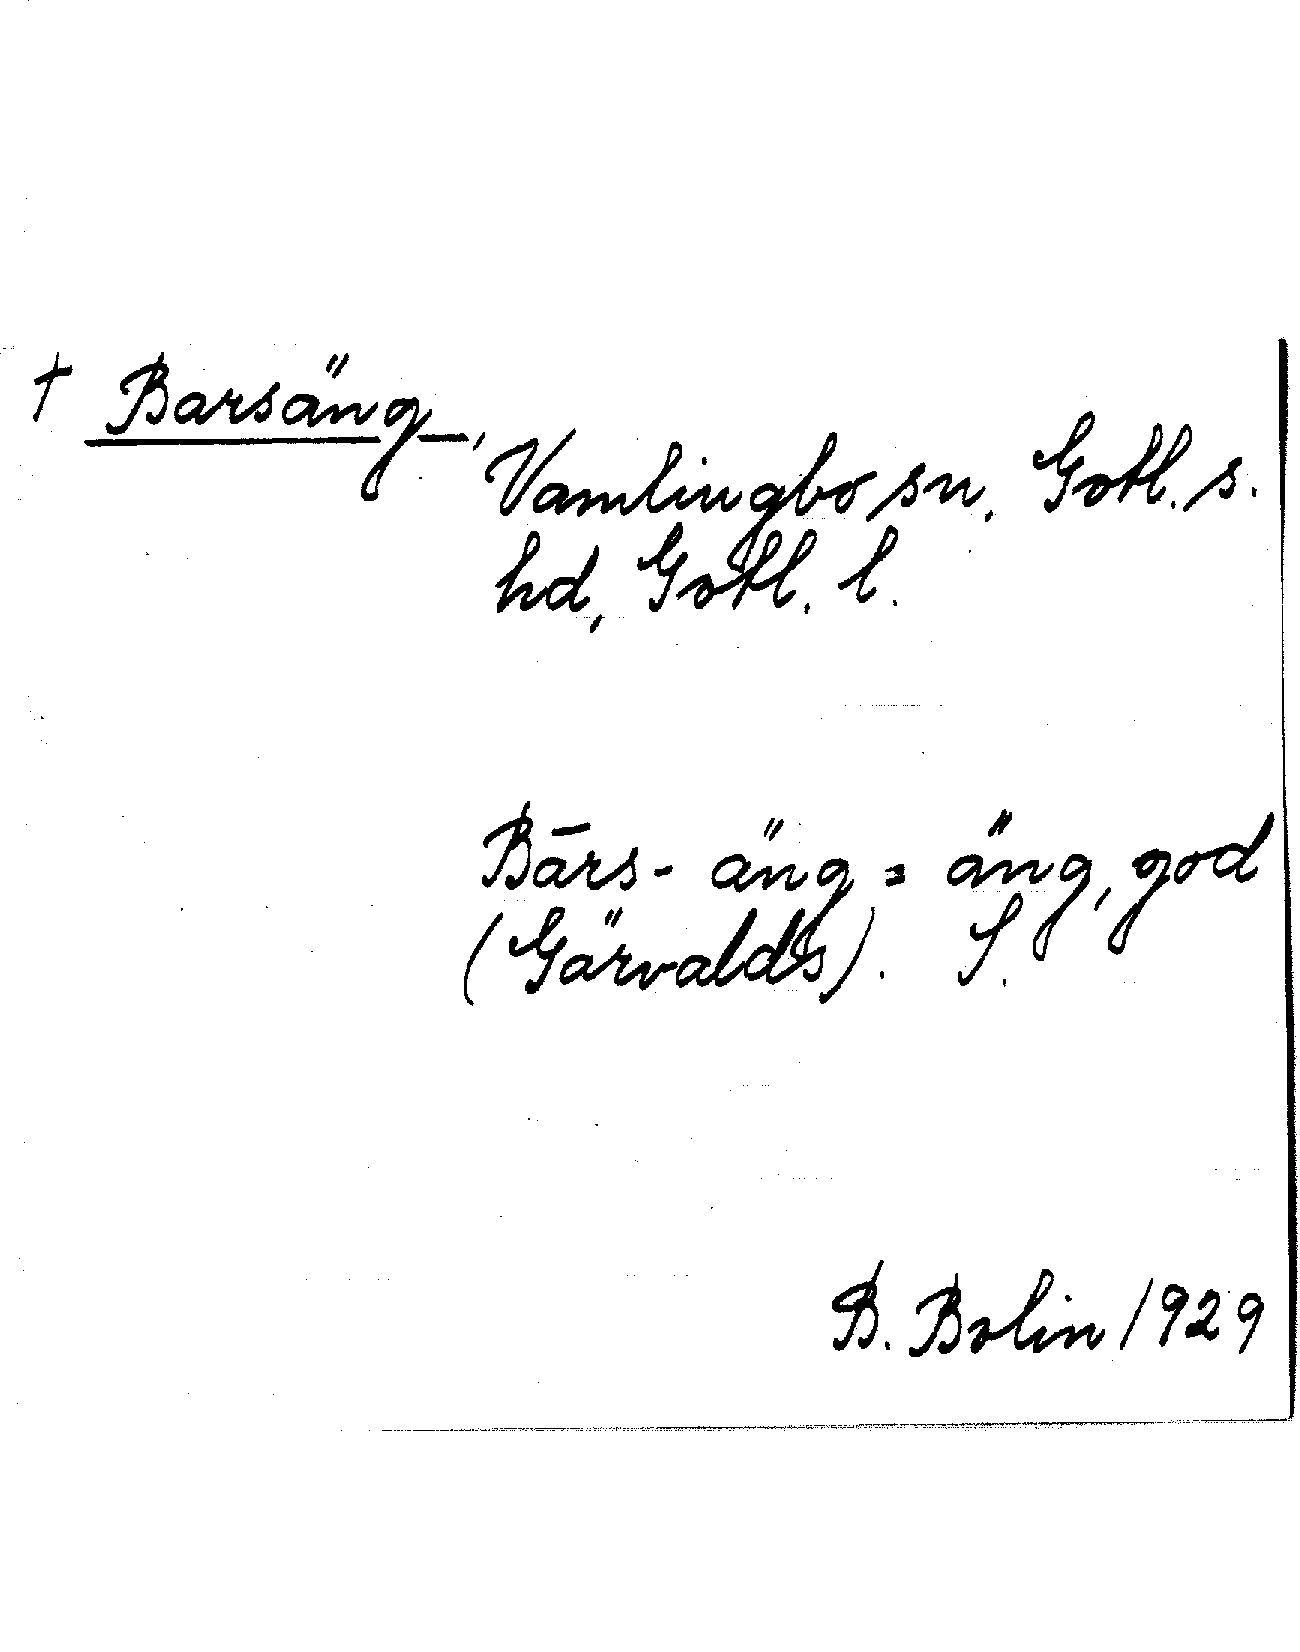 † Barsäng,
Vamlingbo sn, Gotl. s.
hd, Gotl. l.
Bārs- äng = äng, god
(Gärvalds). S.
B. Bolin 1929